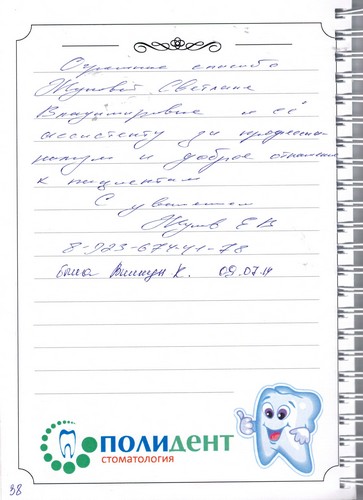 Огромное спасибо
Жуковой Светлане
Владимировне и её
ассистенту за професси
нализм и доброе отношение
к пациентам
С уважением
8-923-674-41-78
была К. 09.07.14
ПОЛИДЕНТ
СТОМАТОЛОГИЯ
38